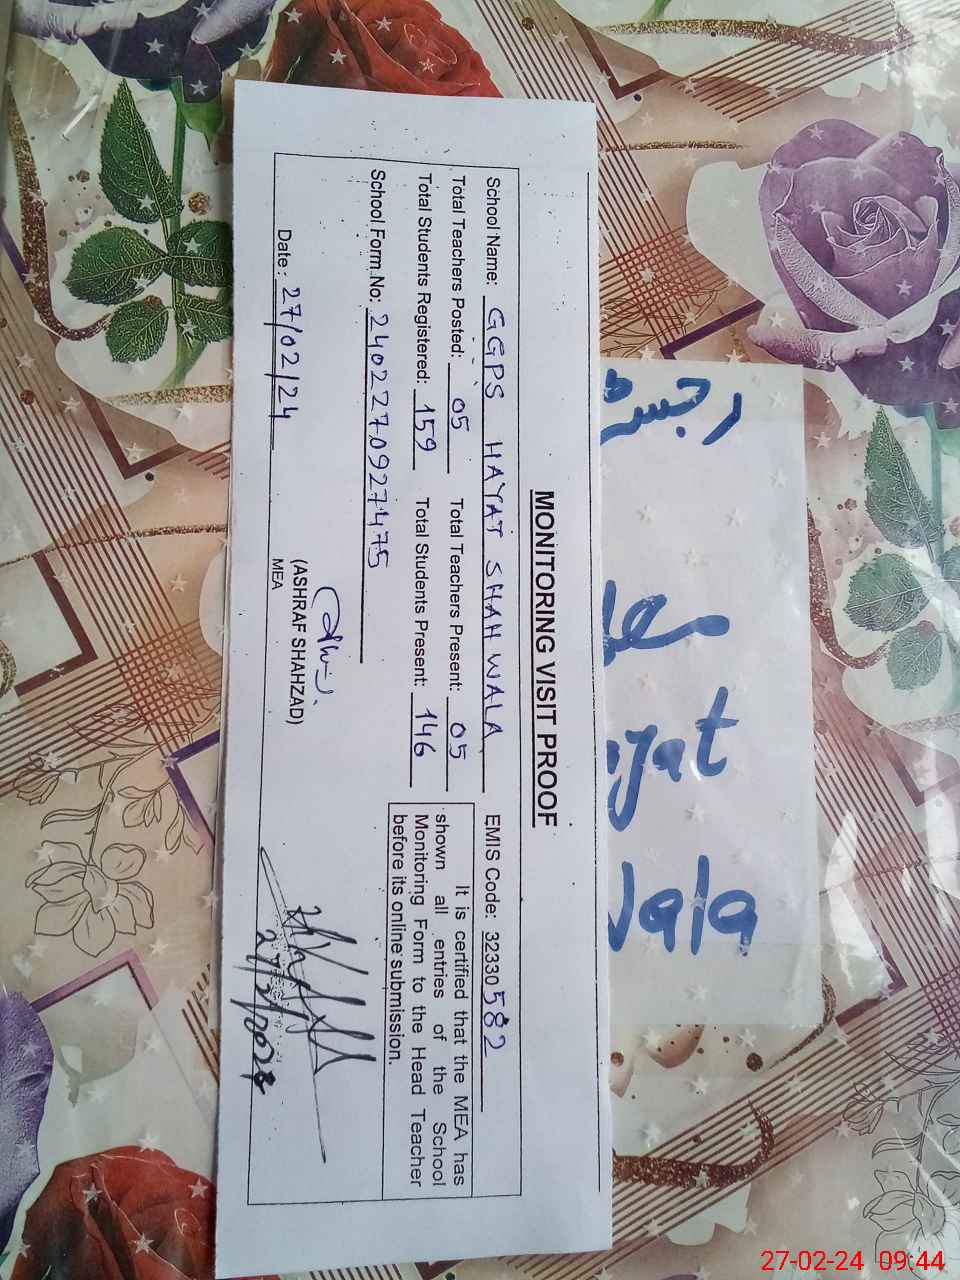 MONITORING VISIT PROOF
School Name: GGPS HAYAT SHAH WALA EMIS Code: 32330582
Total Teachers Posted: 05 Total Teachers Present: 05
Total Students Registered: 159 Total Students Present: 146
School Form No: 2402270927475
It is certified that the MEA has
shown all entries of the School
Monitoring Form to the Head Teacher
before its online submission.
(ASHRAF SHAHZAD)
Date: 27/02/24 MEA
yat
Wala
27-02-24 09:44